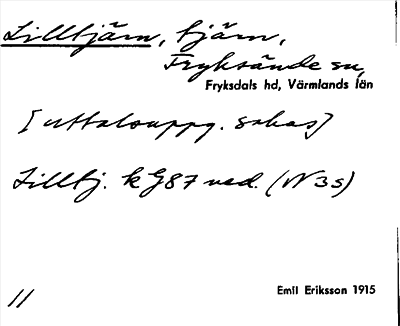 Lilltjärn, tjärn,
Fryksände sn,
Fryksdals hd, Värmlands län
[uttalsuppg. saknas]
Lilltj. k G87 ned. (N 3 s)
Emil Eriksson 1915
11